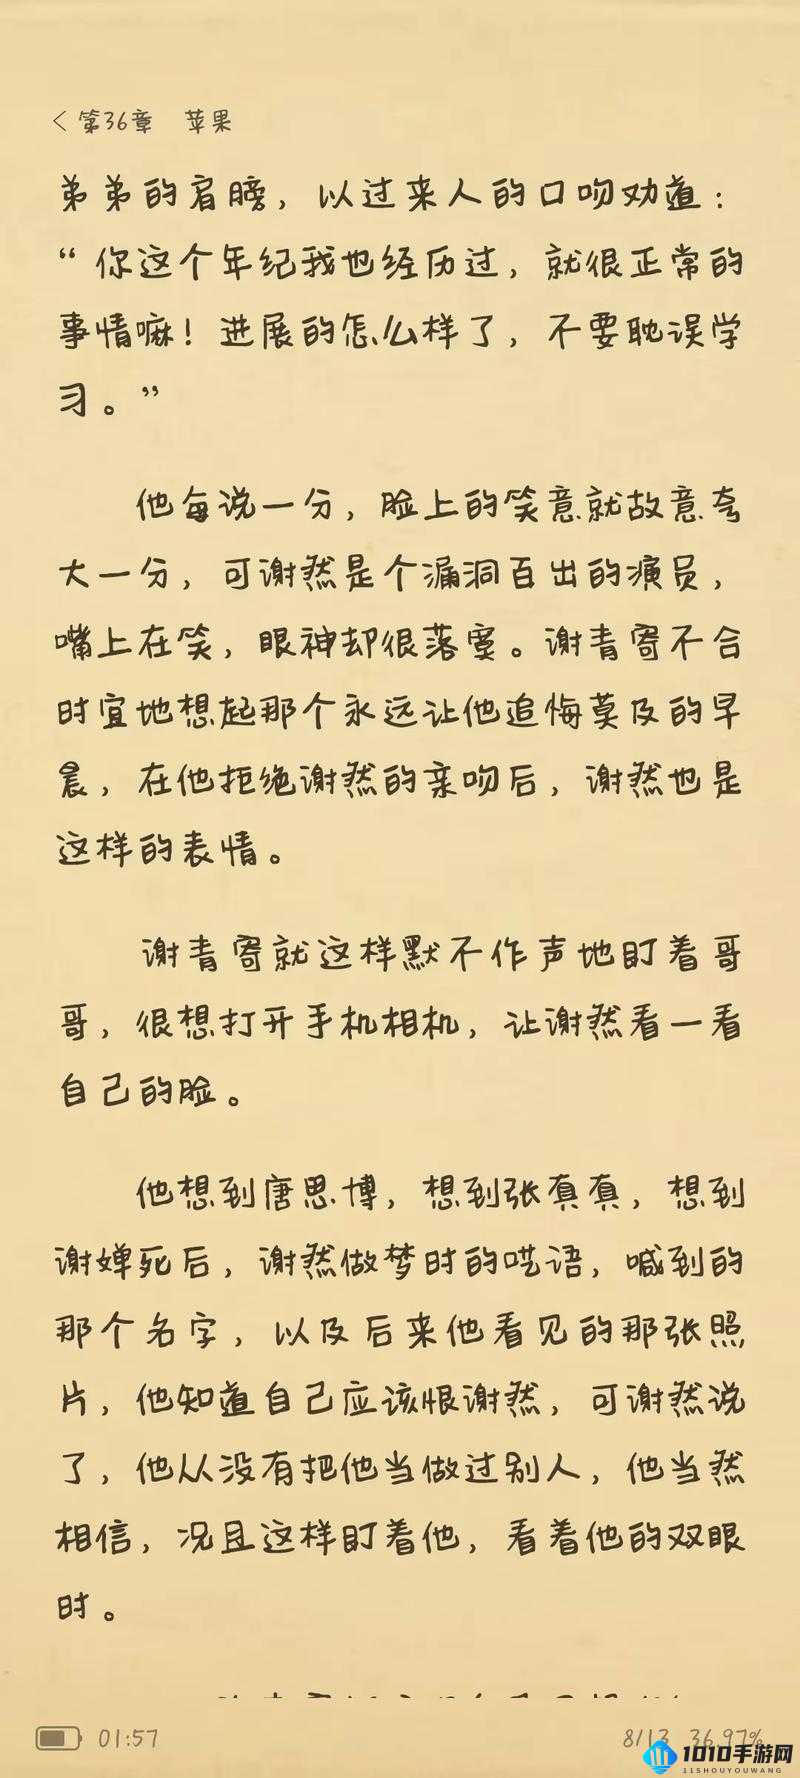 < 第36章 苹果
弟弟的肩膀，以过来人的口吻劝道：
“你这个年纪我也经历过，就很正常的
事情嘛！进展的怎么样了，不要耽误学
习。”
他每说一分，脸上的笑意就故意夸
大一分，可谢然是个漏洞百出的演员，
嘴上在笑，眼神却很落寞。谢青寄不合
时宜地想起那个永远让他追悔莫及的早
晨，在他拒绝谢然的亲吻后，谢然也是
这样的表情。
谢青寄就这样默不作声地盯着哥
哥，很想打开手机相机，让谢然看一看
自己的脸。
他想到唐思博，想到张真真，想到
谢婵死后，谢然做梦时的呓语，喊到的
那个名字，以及后来他看见的那张照
片，他知道自己应该恨谢然，可谢然说
了，他从没有把他当做过别人，他当然
相信，况且这样盯着他，看着他的双眼
时。
01:57
8/13 36.97%
1010手游网
11SHOUYOUWANG